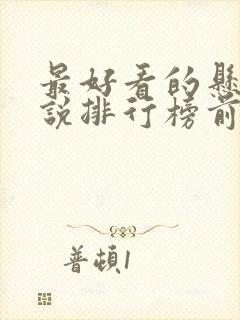 最好看的懸
說排行榜前
普頓1